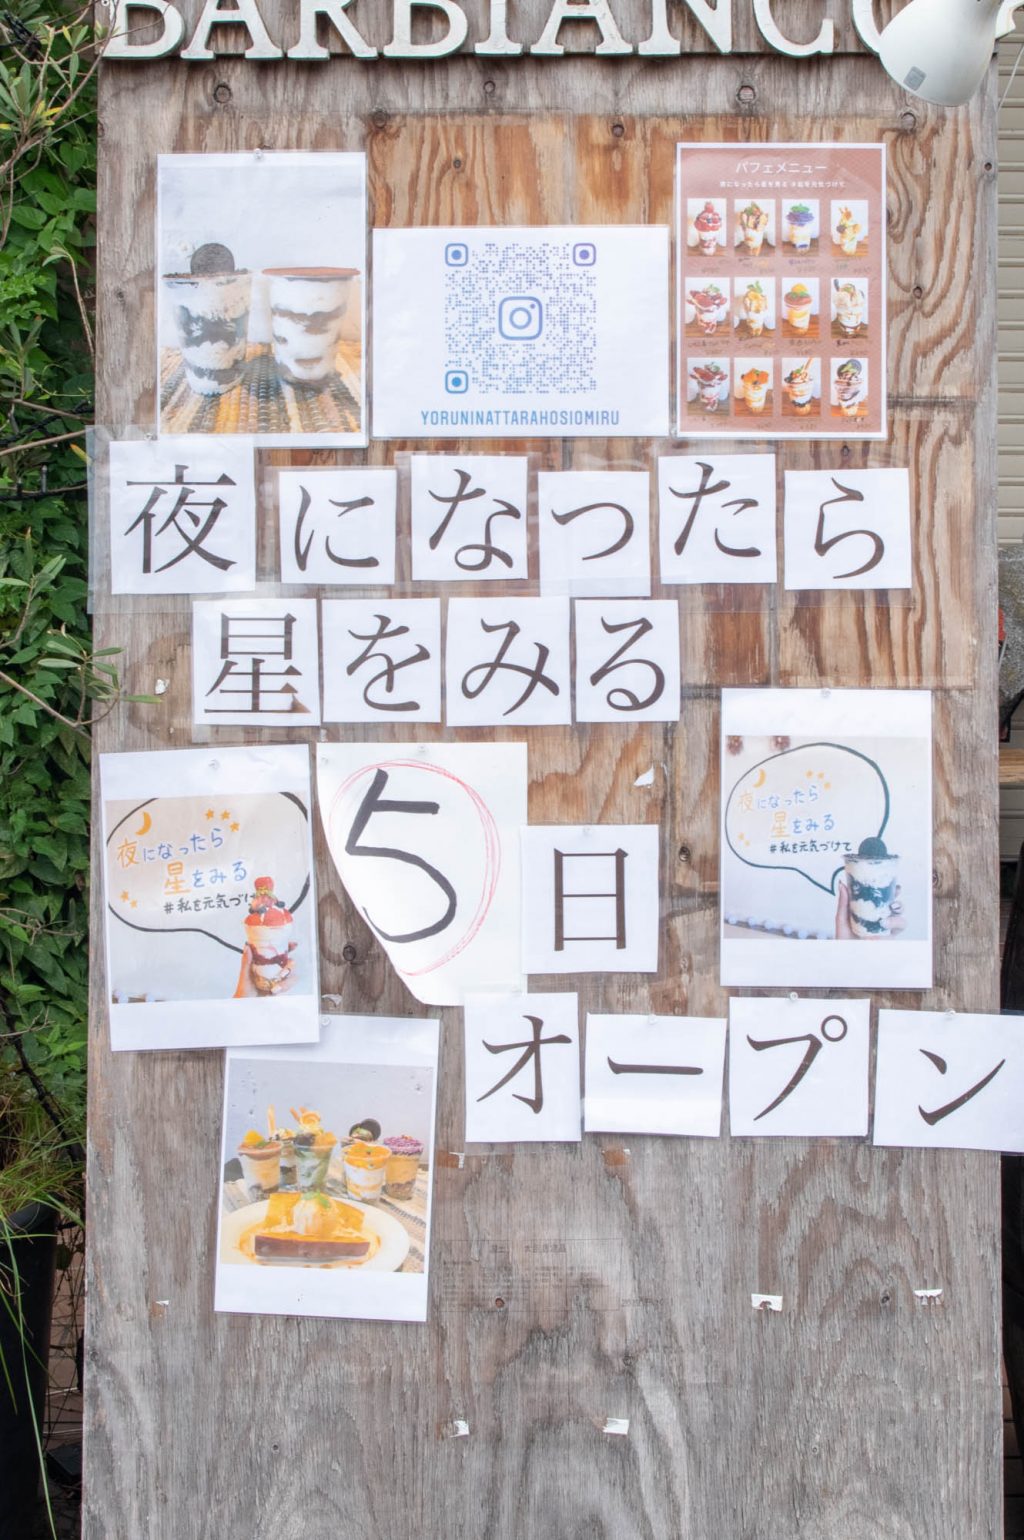 BARBIANCO
パフェメニュー
夜になったら星を見る #私を元気づけて
YORUNINATTARAHOSIOMIRU
夜になったら
星をみる
夜になったら
星をみる
#私を元気づけ
5日
夜になったら
星をみる
#私を元気づけて
オープン